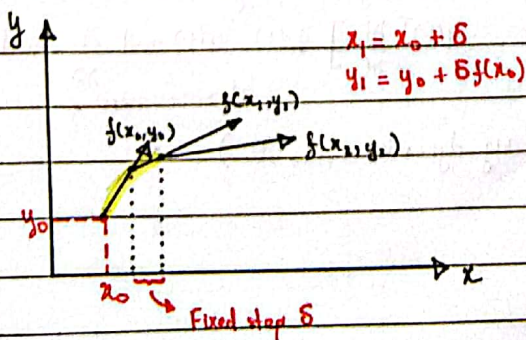 y
x₁ = x₀ + δ
y₁ = y₀ + δf(x₀)
f(x₁,y₁)
f(x₀,y₀)
f(x₂,y₂)
y₀
x₀
x
Fixed step δ